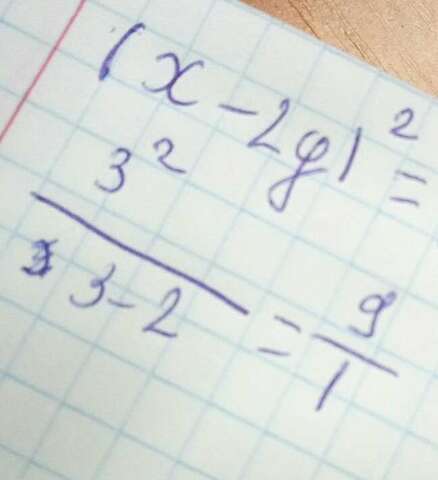 (x - 2y)² =
3²
3 - 2 = 9
1